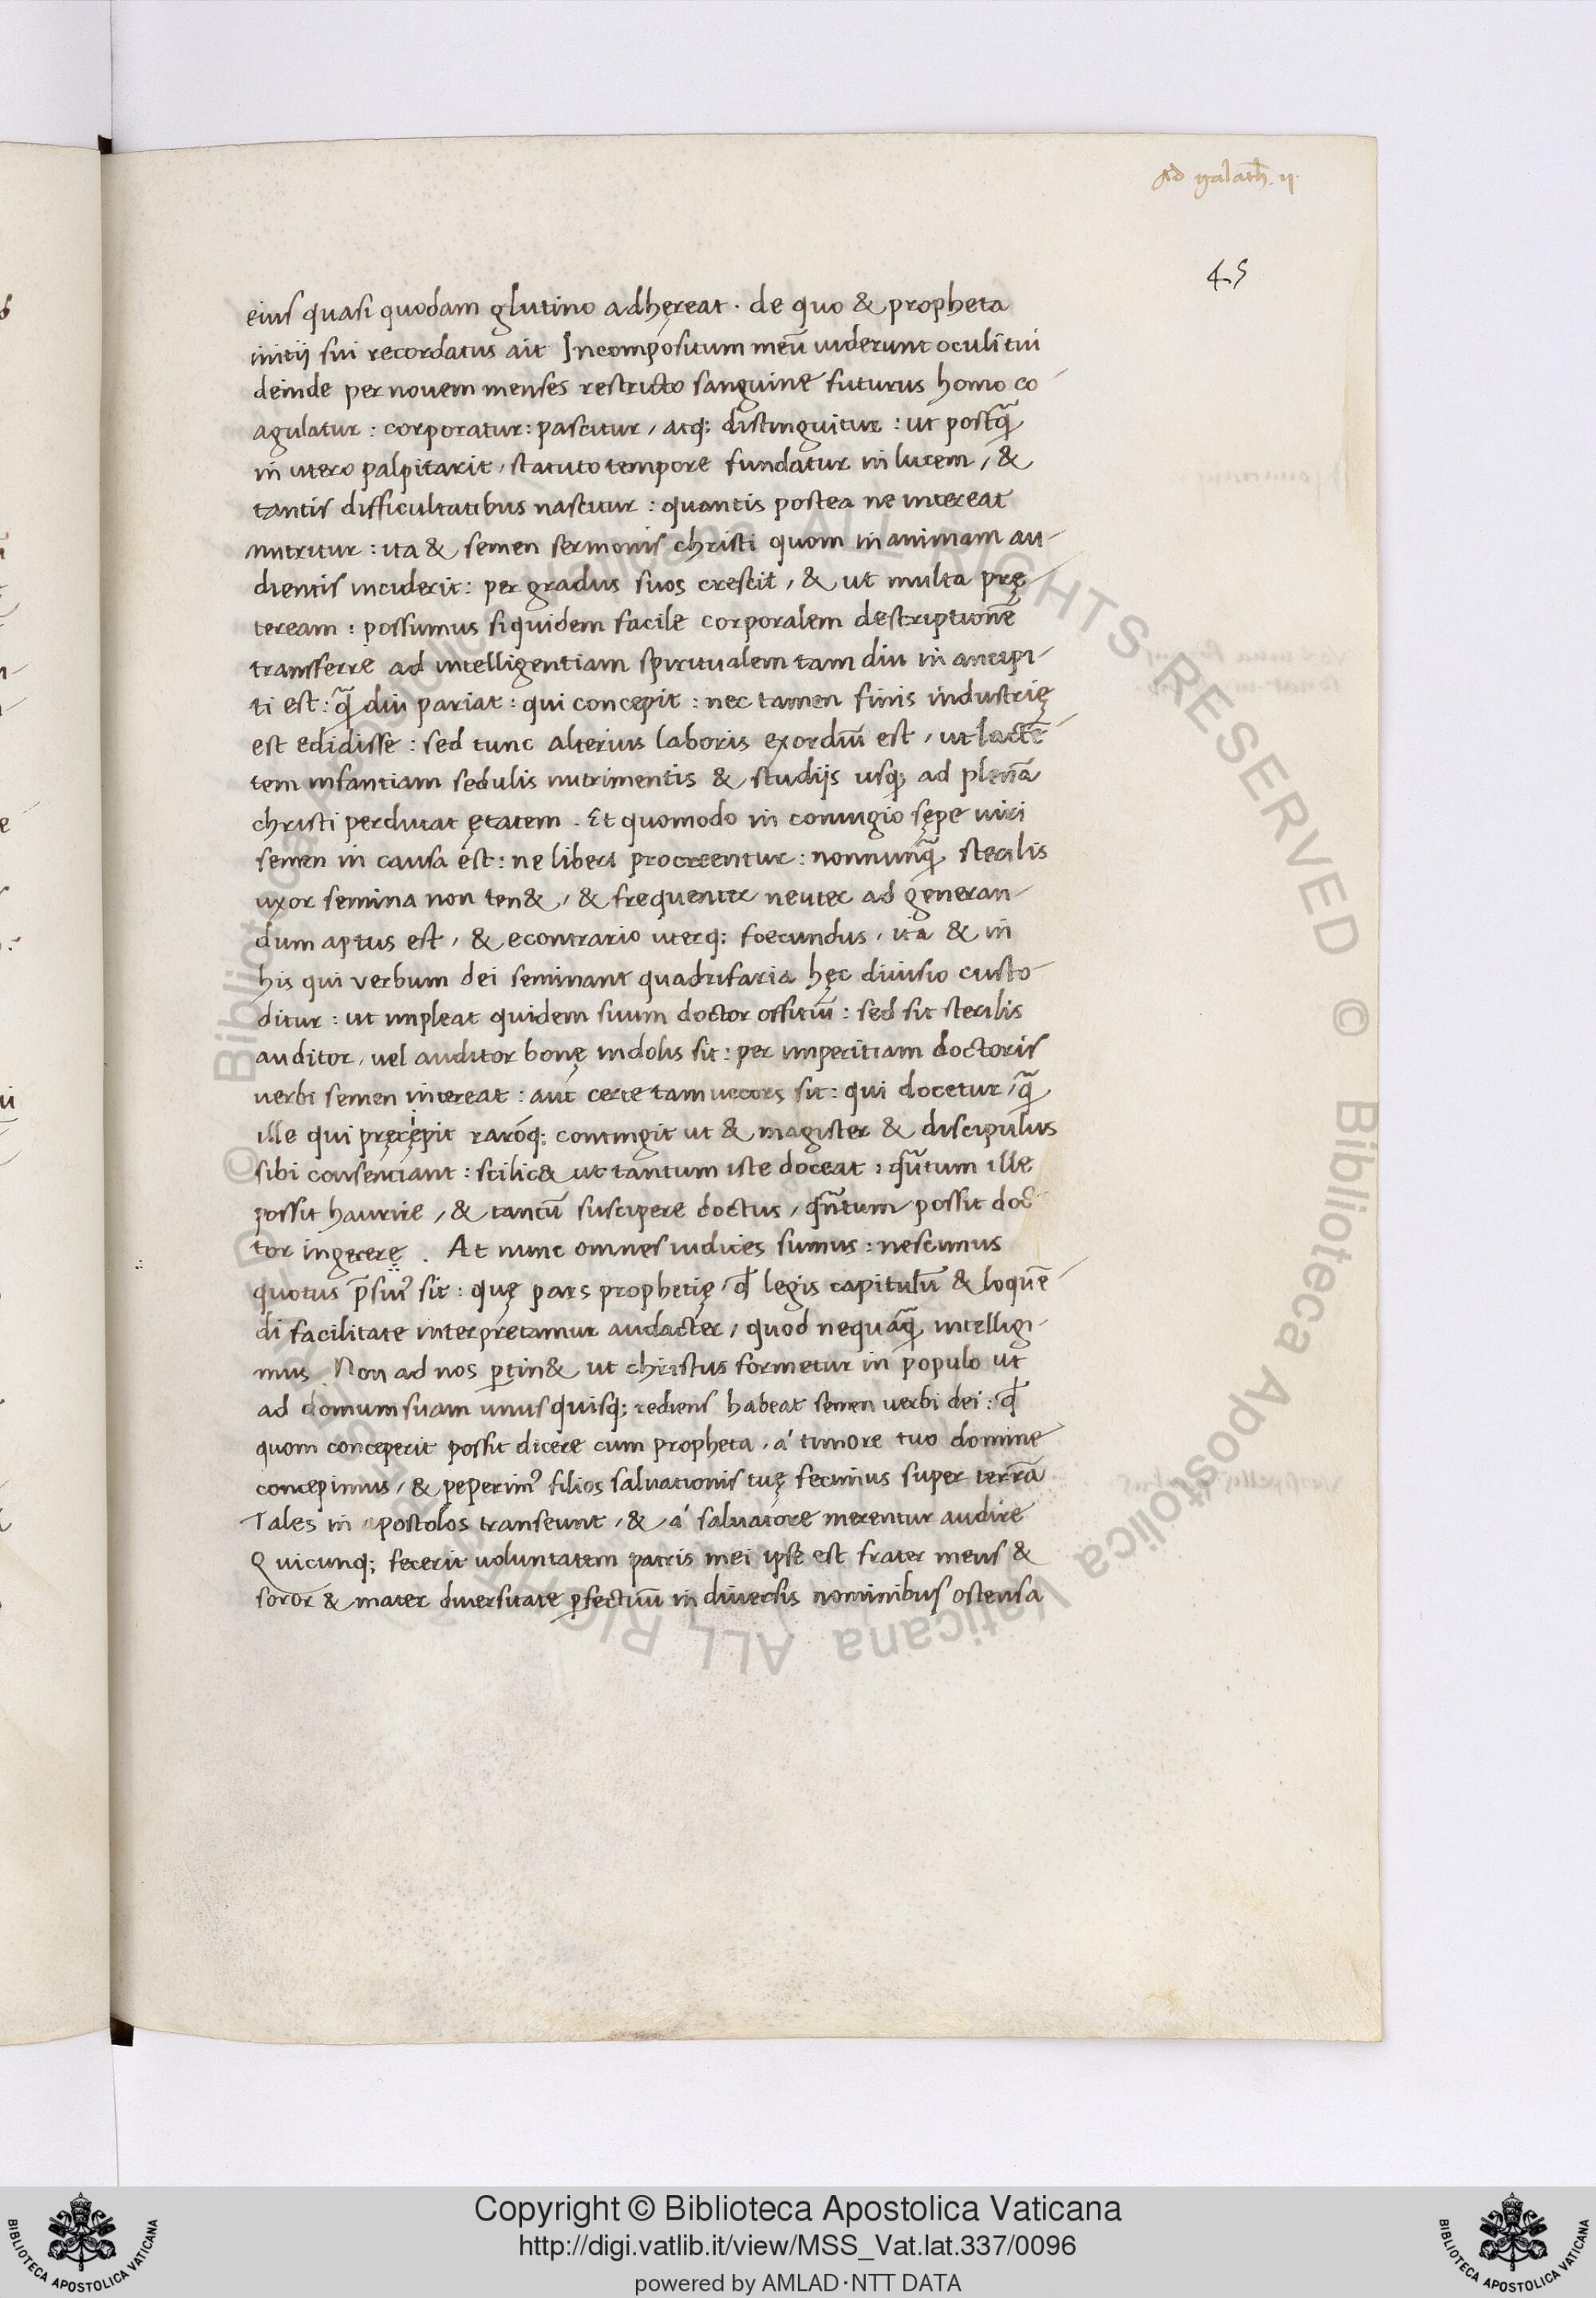 Ad galath. ii.
45
eius quasi quodam glutino adhęreat. de quo & propheta
initij sui recordatus ait Incompositum meū viderunt oculi tui
deinde per novem menses restricto sanguine futurus homo co
agulatur : corporatur : pascitur, atq; distinguitur : ut postq̄
in utero palpitarit, statuto tempore fundatur in lucem, &
tantis difficultatibus nascitur : quantis postea ne intereat
nutritur : ita & semen sermonis christi quom in animam au-
dientis inciderit : per gradus suos crescit, & ut multa prę-
teream : possumus siquidem facile corporalem descriptionē
transferre ad intelligentiam spiritualem tam diu in ancipi-
ti est : q̄ diu pariat : qui concepit : nec tamen finis industrię
est edidisse : sed tunc alterius laboris exordiū est, ut lactē-
tem infantiam sedulis nutrimentis & studijs usq; ad plenā
christi perducat ętatem. Et quomodo in coniugio sępe viri
semen in causa est : ne liberi procreentur : nonnunq̄ sterilis
uxor semina non ten&, & frequenter neuter ad generan-
dum aptus est, & econtrario uterq; foecundus, ita & in
his qui verbum dei seminant quadrifaria hęc divisio custo-
ditur : ut impleat quidem suum doctor offitiū : sed sit sterilis
auditor, vel auditor bonę indolis sit : per imperitiam doctoris
verbi semen intereat : aut certe tam vecors sit : qui docetur, q̄
ille qui pręcepit raróq; contingit ut & magister & discipulus
sibi consentiant : scilic& ut tantum iste doceat : qūtum ille
possit haurire, & tantū suscipere doctus, qn̄tum possit doc-
tor ingerere. At nunc omnes iudices sumus : nescimus
quotus p̄sui⁹ sit : quę pars prophetię, qđ legis capitulū & loquē-
di facilitate interpretamur audacter, quod nequaq̄ intelligi-
mus. Non ad nos ꝑtin& ut christus formetur in populo ut
ad domum suam unusquisq; rediens habeat semen verbi dei : qđ
quom conceperit possit dicere cum propheta, á timore tuo domine
concepimus, & peperim⁹ filios salvationis tuę fecimus super terrā
Tales in apostolos transeunt, & á salvatore merentur audire
Quicunq; fecerit voluntatem patris mei ipse est frater meus &
soror & mater diversitate ꝑfectiuū in diversis nominibus ostensa
Copyright © Biblioteca Apostolica Vaticana
http://digi.vatlib.it/view/MSS_Vat.lat.337/0096
powered by AMLAD·NTT DATA